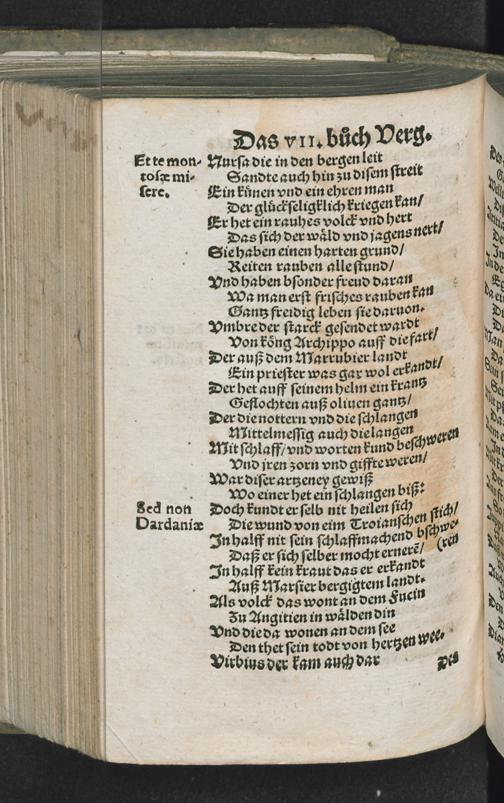 Das VII. bůch Verg.
Et te mon-
tosæ mi-
sere.
Nursa die in den bergen leit
Sandte auch hin zu disem streit
Ein künen vnd ein ehren man
Der glückseligklich kriegen kan/
Er het ein rauhes volck vnd hert
Das sich der wäld vnd jagens nert/
Sie haben einen harten grund/
Reiten rauben alle stund/
Vnd haben bsonder freud daran
Wa man erst frisches rauben kan
Gantz freidig leben sie daruon.
Vmbre der starck gesendet wardt
Von köng Archippo auff die fart/
Der auß dem Marrubier landt
Ein priester was gar wol erkandt/
Der het auff seinem helm ein krantz
Geflochten auß oliuen gantz/
Der die nottern vnd die schlangen
Mittelmessig auch die langen
Mit schlaff/ vnd worten kund beschweren
Vnd jren zorn vnd giffte weren/
War diser artzeney gewiß
Wo einer het ein schlangen biß:
Sed non
Dardaniæ
Doch kundt er selb nit heilen sich
Die wund von eim Troianschen stich/
In halff nit sein schlaffmachend bschwe-
Daß er sich selber mocht ernerē/ (ren
In halff kein kraut das er erkandt
Auß Marsier bergigtem landt.
Als volck das wont an dem Fucin
Zu Angitien in wälden din
Vnd die da wonen an dem see
Den thet sein todt von hertzen wee.
Virbius der kam auch dar
Des